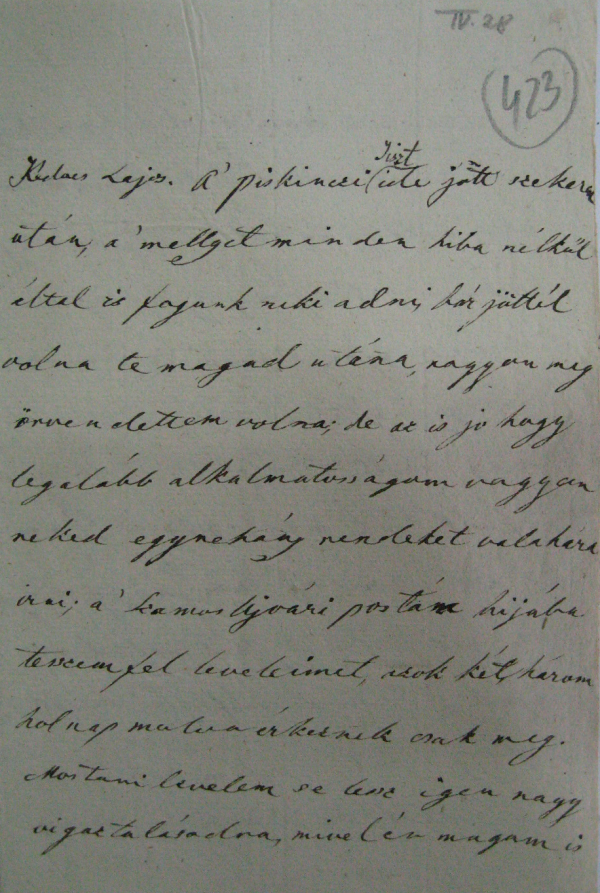 IV. 28
423
Kedves Lajos. A' piskinczi Tiszt ide jött szekere
után, a' mellyet minden hiba nélkül
által is fogunk neki adni, bár jöttél
volna te magad utána, nagyon meg
örvendettem volna; de az is jo hogy
legalább alkalmatosságom vagyon
neked egynehány rendeket valahára
irni; a' Szamos Ujvári postán hijába
teszem fel leveleimet, azok két, három
holnap mulva érkeznek csak meg.
Mostani levelem se lesz igen nagy
vigasztalásodra, mivel én magam is